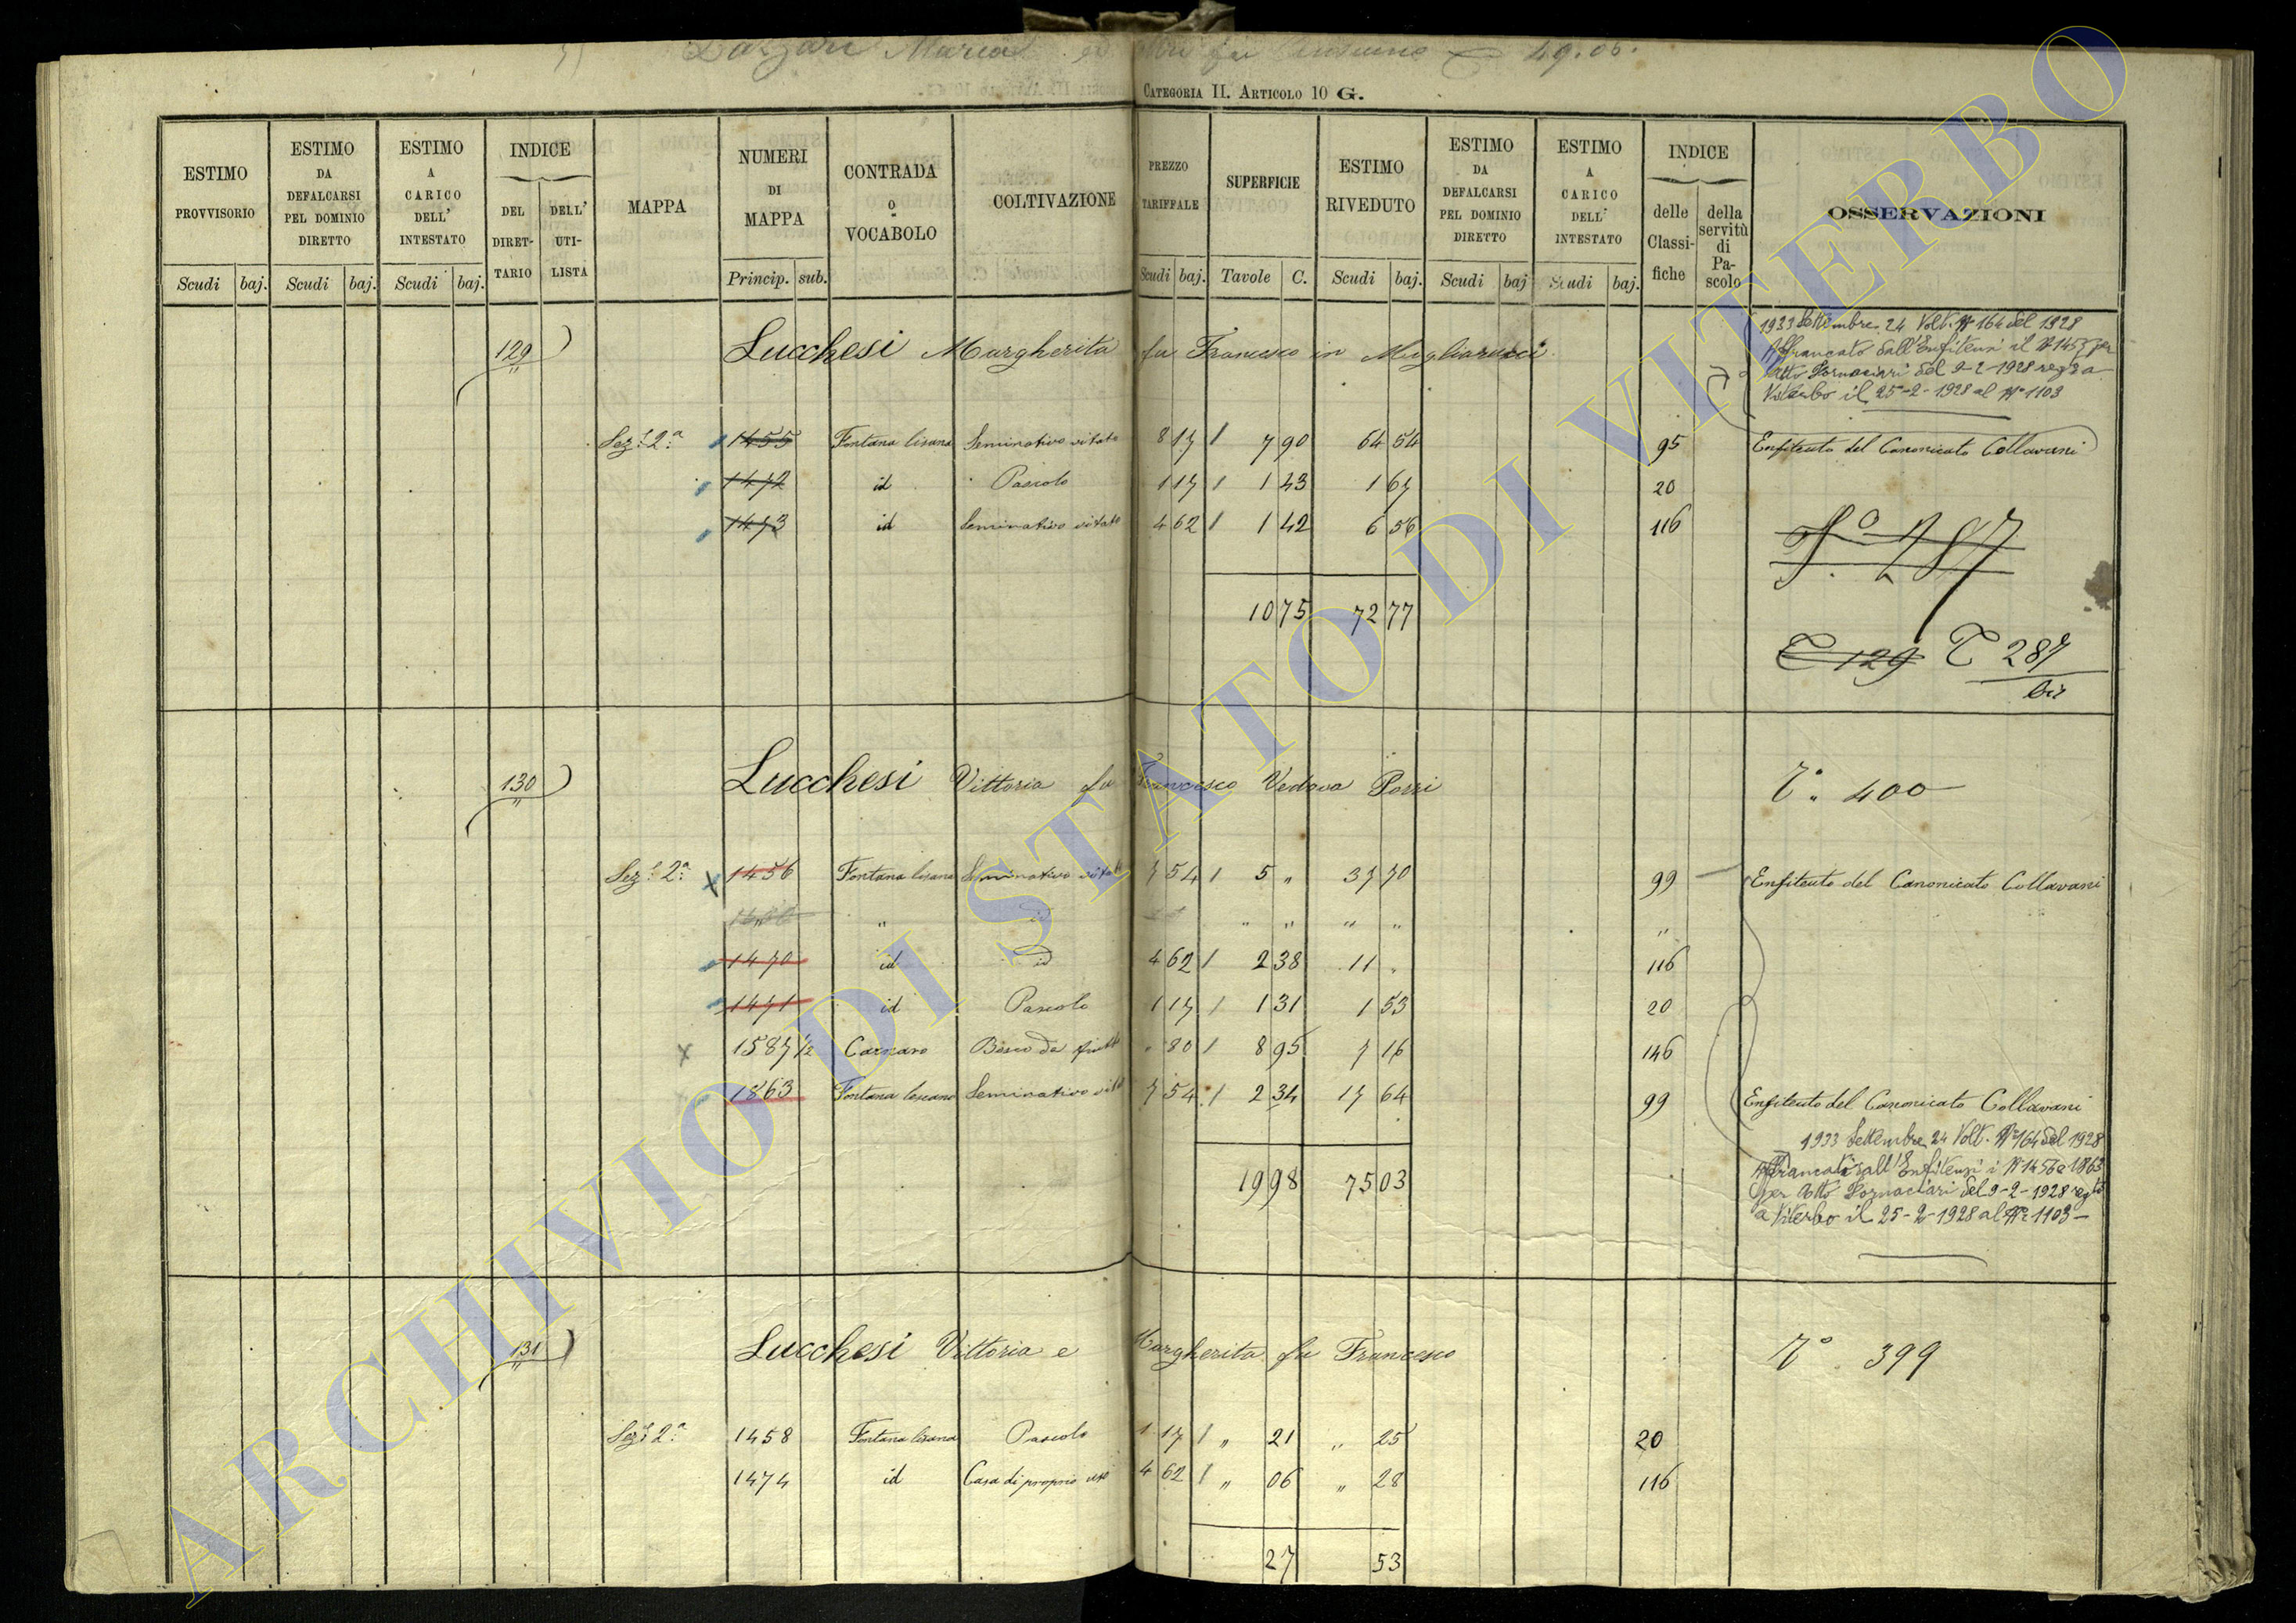 Lazzari Maria
49.06.
CATEGORIA II. ARTICOLO 10 G.
ESTIMO PROVVISORIO
ESTIMO DA DEFALCARSI PEL DOMINIO DIRETTO
ESTIMO A CARICO DELL' INTESTATO
INDICE
DEL DIRET-TARIO
DELL' UTI-LISTA
MAPPA
NUMERI DI MAPPA
CONTRADA O VOCABOLO
COLTIVAZIONE
PREZZO TARIFFALE
SUPERFICIE
ESTIMO RIVEDUTO
ESTIMO DA DEFALCARSI PEL DOMINIO DIRETTO
ESTIMO A CARICO DELL' INTESTATO
INDICE
delle Classi-fiche
della servitù di Pa-scolo
OSSERVAZIONI
Scudi baj. Scudi baj. Scudi baj. Princip. sub. Scudi baj. Tavole C. Scudi baj. Scudi baj Scudi baj.
129 Lucchesi Margherita fu Francesco in Magliarucci
1933 Settembre 24 Volt. N° 164 del 1928
Affrancato dall'Enfiteusi il N° 1455 per
Atto Fornaciari del 9-2-1928 reg° a
Viterbo il 25-2-1928 al N° 1103
Sez.e 2.a 1455 Fontana lisana Seminativo vitato 8 17 1 7 90 64 54 95 Enfiteuta del Canonicato Collavani
1472 id Pascolo 1 17 1 1 43 1 67 20
1473 id Seminativo vitato 4 62 1 1 42 6 56 116
10 75 72 77
T 129 T 287
bis
130 Lucchesi Vittoria fu Francesco Vedova Porri T° 400
Sez.e 2.a 1456 Fontana lisana Seminativo vitato 7 54 1 5 " 37 70 99 Enfiteuta del Canonicato Collavani
" id " " " " "
1470 id id 4 62 1 2 38 11 " 116
1471 id Pascolo 1 17 1 1 31 1 53 20
1587 1/2 Carnaro Bosco da frutto " 80 1 8 95 7 16 146
1863 Fontana lesana Seminativo vitato 7 54 1 2 34 17 64 99 Enfiteuta del Canonicato Collavani
19 98 75 03
1933 Settembre 24 Volt. N° 164 del 1928
Affrancati dall'Enfiteusi i N° 1456 e 1863
per Atto Fornaciari del 9-2-1928 regto
a Viterbo il 25-2-1928 al N° 1103 -
131 Lucchesi Vittoria e Margherita fu Francesco T° 399
Sez.e 2.a 1458 Fontana lisana Pascolo 1 17 1 " 21 " 25 20
1474 id Casa di proprio uso 4 62 1 " 06 " 28 116
27 53
ARCHIVIO DI STATO DI VITERBO